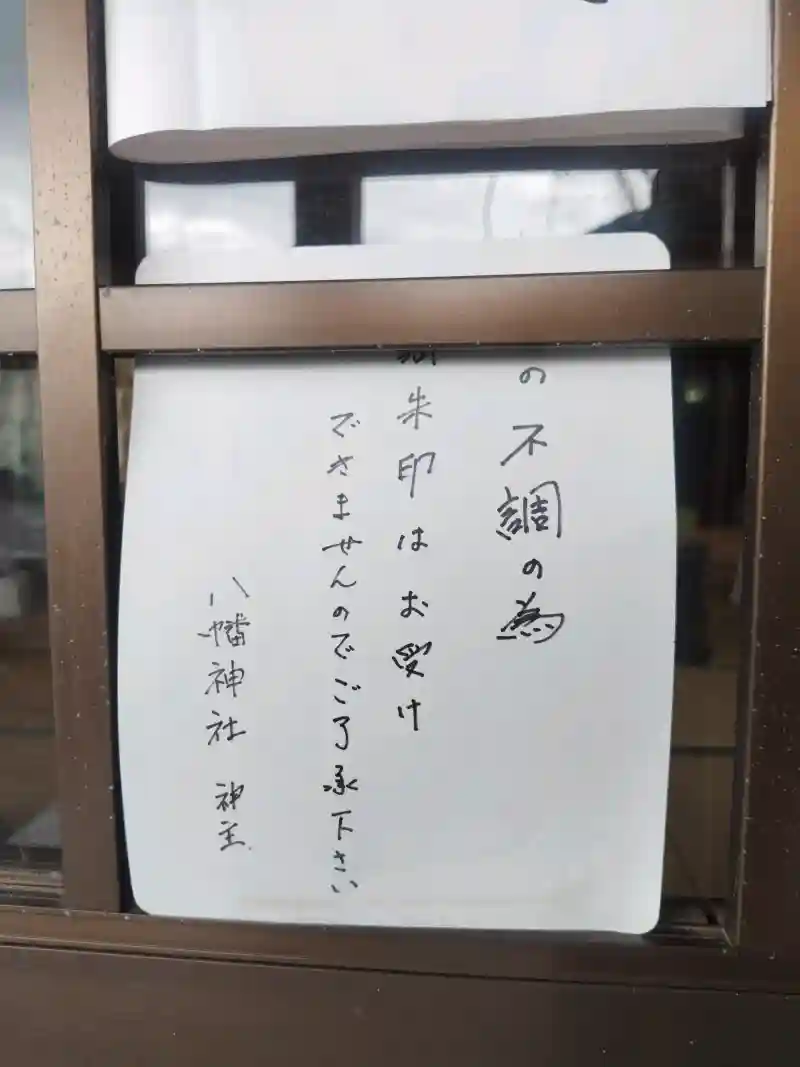 の不調の為
朱印はお受け
できませんのでご了承下さい
八幡神社 神主